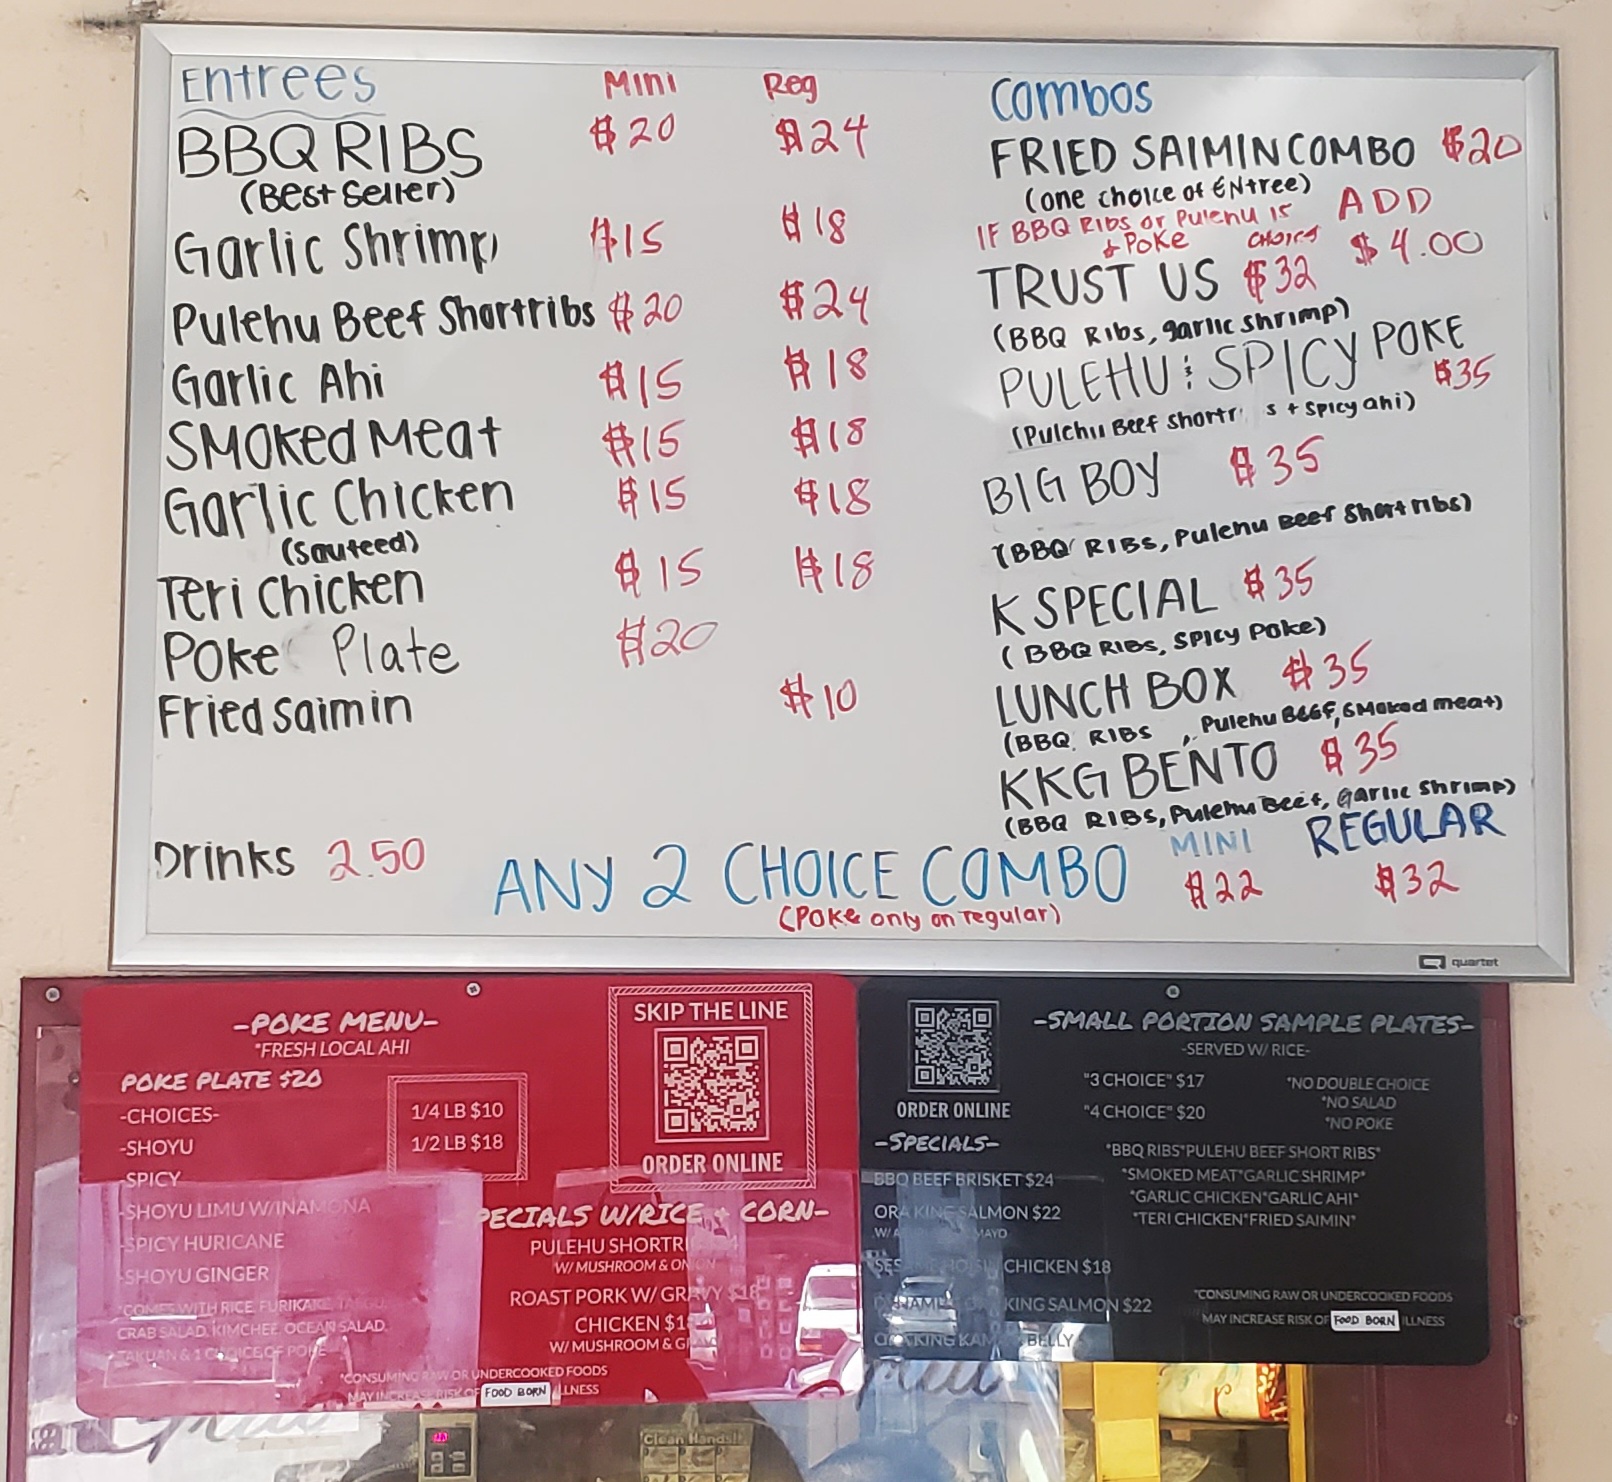 Entrees Mini Reg
BBQ RIBS $20 $24
(Best Seller)
Garlic Shrimp $15 $18
Pulehu Beef Shortribs $20 $24
Garlic Ahi $15 $18
SMOKED MEAT $15 $18
Garlic Chicken $15 $18
(Sauteed)
Teri Chicken $15 $18
POKE Plate $20
Fried Saimin $10
Drinks 2.50
Combos
FRIED SAIMIN COMBO $20
(one choice of ENtree)
IF BBQ Ribs or Pulehu is ADD
+ Poke CHOICE $4.00
TRUST US $32
(BBQ Ribs, garlic shrimp)
PULEHU & SPICY POKE
$35
(Pulehu Beef Shortr s + Spicy ahi)
BIG BOY $35
(BBQ RIBS, Pulehu Beef Short ribs)
K SPECIAL $35
(BBQ RIBS, SPICY POKE)
LUNCH BOX $35
(BBQ RIBS, Pulehu BEEF, SMOKED meat)
KKG BENTO $35
(BBQ RIBS, Pulehu Beef, Garlic Shrimp)
ANY 2 CHOICE COMBO MINI REGULAR
$22 $32
(POKE only on regular)
quartet
-POKE MENU-
*FRESH LOCAL AHI
POKE PLATE $20
-CHOICES-
-SHOYU
-SPICY
-SHOYU LIMU W/INAMONA
-SPICY HURICANE
-SHOYU GINGER
*COMES WITH RICE, FURIKAKE,
CRAB SALAD, KIMCHEE, OCEAN SALAD,
TAKUAN & 1 CHOICE OF POKE
1/4 LB $10
1/2 LB $18
SKIP THE LINE
ORDER ONLINE
PECIALS W/RICE + CORN-
PULEHU SHORTRI
W/ MUSHROOM & ONION
ROAST PORK W/ GRAVY $18
CHICKEN $1
W/ MUSHROOM & G
*CONSUMING RAW OR UNDERCOOKED FOODS
MAY INCREASE RISK OF FOOD BORN ILLNESS
ORDER ONLINE
-SPECIALS-
BBQ BEEF BRISKET $24
ORA KING SALMON $22
W/ MAYO
CHICKEN $18
KING SALMON $22
KING BELLY
-SMALL PORTION SAMPLE PLATES-
-SERVED W/ RICE-
"3 CHOICE" $17
"4 CHOICE" $20
*NO DOUBLE CHOICE
*NO SALAD
*NO POKE
*BBQ RIBS*PULEHU BEEF SHORT RIBS*
*SMOKED MEAT*GARLIC SHRIMP*
*GARLIC CHICKEN*GARLIC AHI*
*TERI CHICKEN*FRIED SAIMIN*
*CONSUMING RAW OR UNDERCOOKED FOODS
MAY INCREASE RISK OF FOOD BORN ILLNESS
Clean Hands!!